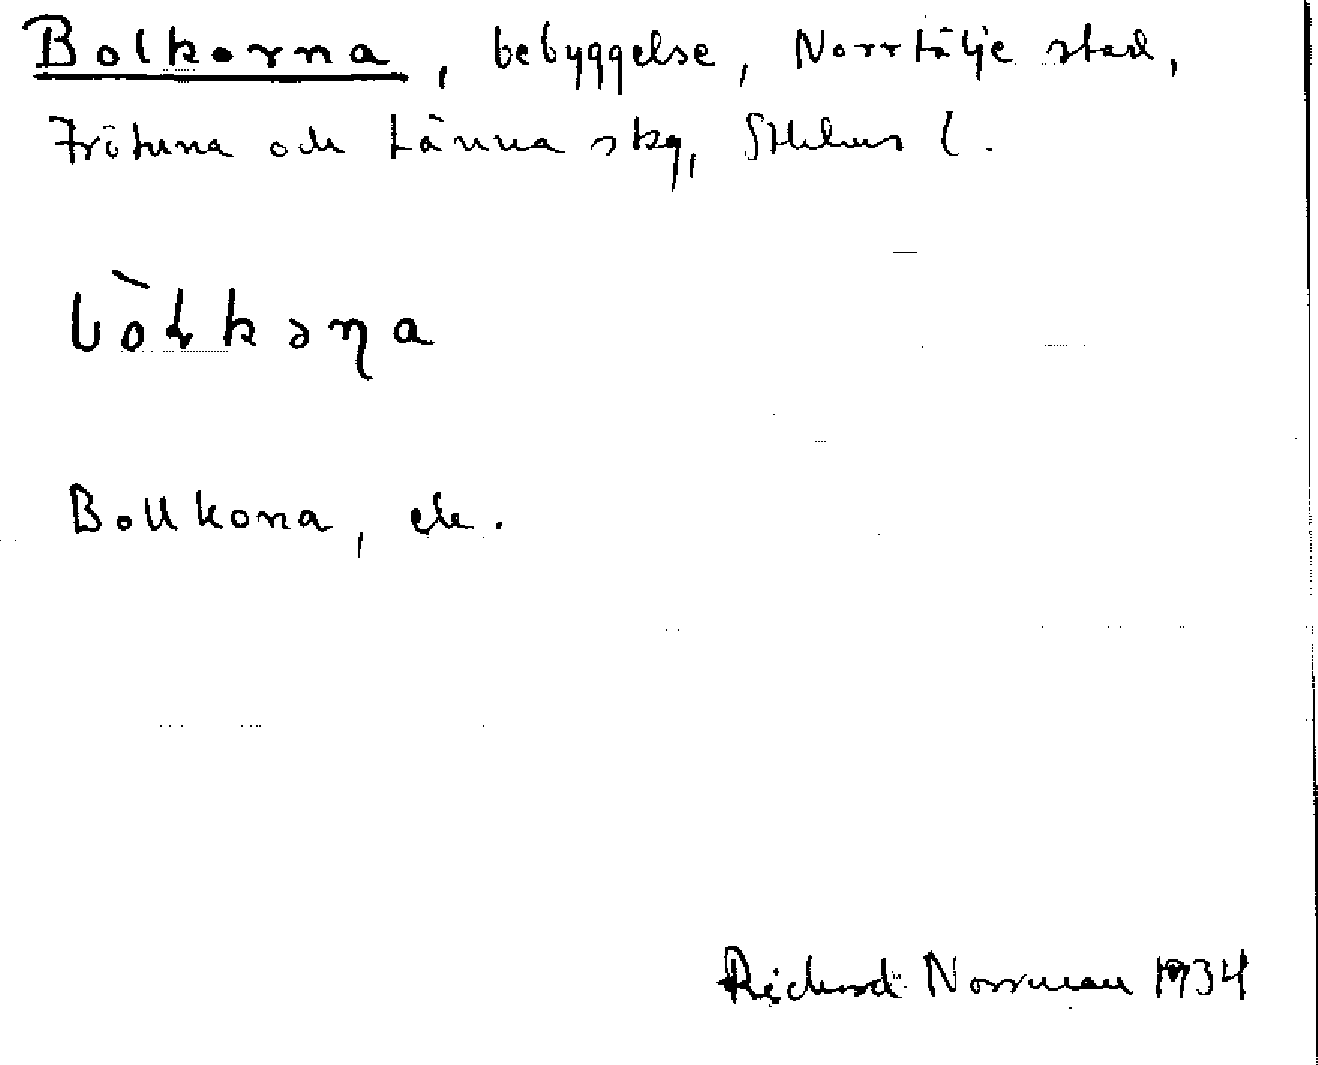 Bolkorna, bebyggelse, Norrtälje stad,
Frötuna och Länna skg, Sthlms l.
bòłkəɳa
Bollkona, ek.
Richard Norrman 1934